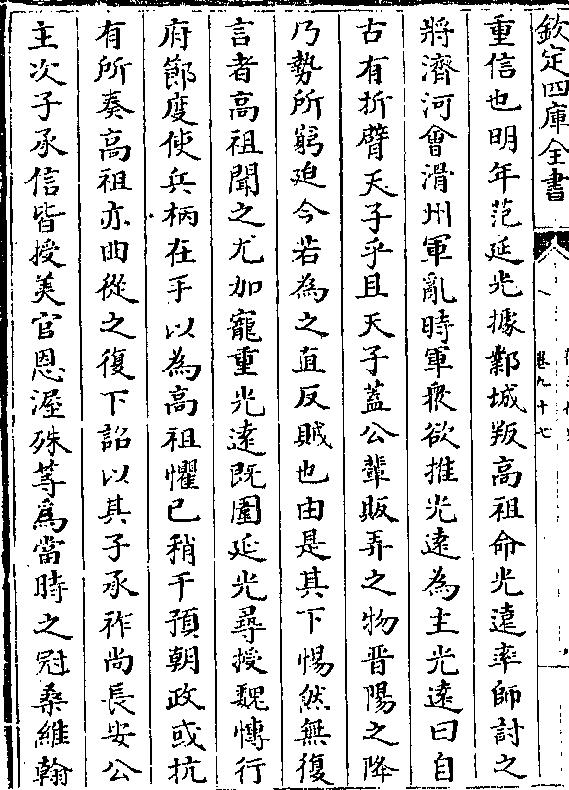 欽定四庫全書
卷九十七
重信也明年范延光據鄴城叛高祖命光遠率師討之
將濟河會滑州軍亂時軍衆欲推光遠為主光遠曰自
古有折臂天子乎且天子蓋公輩販弄之物晉陽之降
乃勢所窮廹今若為之直反賊也由是其下惕然無復
言者高祖聞之尤加寵重光遠既圍延光尋授魏愽行
府節度使兵柄在手以為高祖懼已稍干預朝政或抗
有所奏高祖亦曲從之復下詔以其子承祚尚長安公
主次子承信皆授美官恩渥殊等爲當時之冠桑維翰